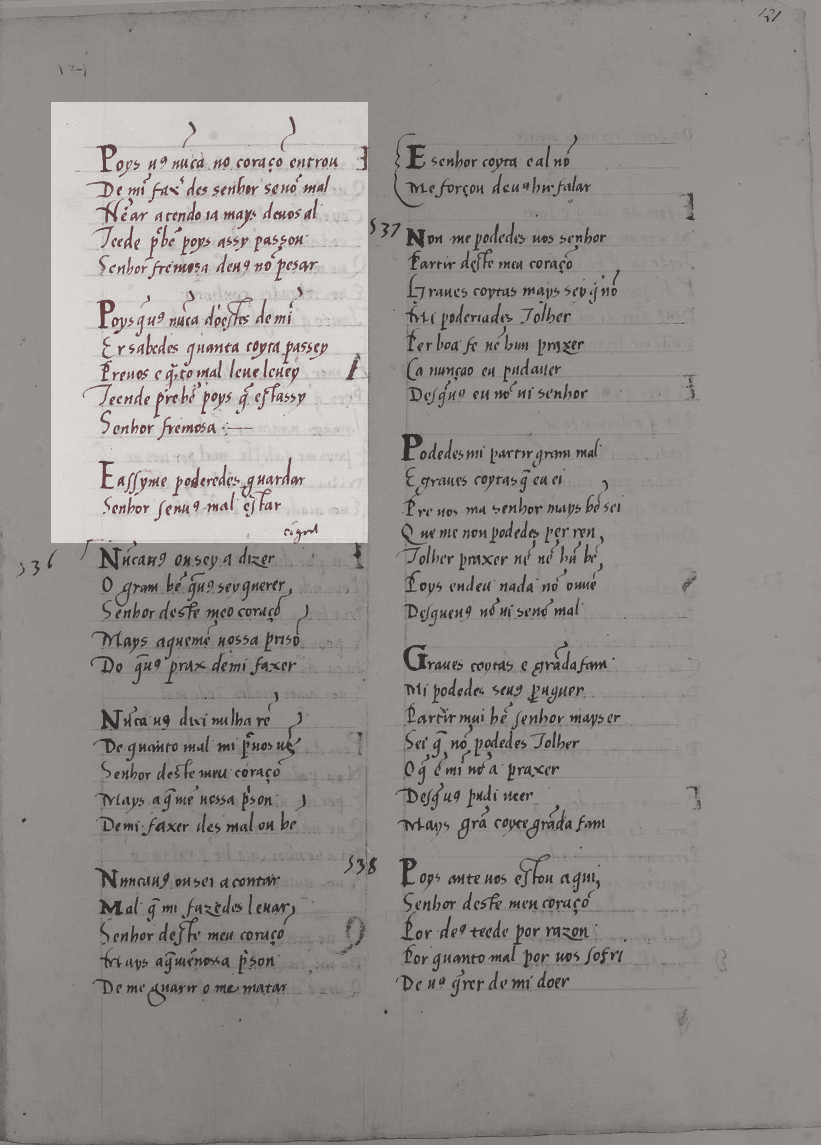 131
Poys u9 nũca no coraçõ entrou
De mĩ fax' des senhor senõ mal
Nẽ ar atendo ia mays deuos al
Teede p'bẽ poys assy passou
Senhor fremosa deu9 nõ pesar
Poys q̃u9 nũca doestes de mĩ
Er sabedes quanta coyta passey
Preuos e q̃ to mal leue leuey
Teende p'rebẽ poys q̃ estassy
Senhor fremosa
E assyme poderedes guardar
Senhor senu9 mal estar
536
Nũcau9 ousey a dizer
O gram bẽ q̃u9 sey querer
Senhor deste meo coraçõ
Mays aquemẽ uossa prisõ
Do q̃u9 prax demi faxer
Nũca u9 dixi nulha rẽ
De quanto mal mi p'uos uẽ
Senhor deste meu coraçõ
Mays aq̃mẽ uossa p'son
Demi faxer des mal ou bẽ
Nuncau9 ousei a contar
Mal q̃ mi fazedes leuar
Senhor deste meu coraçõ
Mays aq̃mẽ uossa p'son
De me guarir o me matar
E senhor coyta e al nõ
Me forçou deu9 hir falar
537
Non me podedes uos senhor
Partir deste meu coraçõ
Graues coytas mays sey q̃ nõ
Mi poderiades Tolher
Per boa fe nẽ hun praxer
Ca nunçao eu pud auer
Desq̃u9 eu nõ ui senhor
Podedesmi partir gram mal
E graues coytas q̃ eu ei
Preuos ma senhor mays bẽ sei
Que me non podedes per ren
Tolher praxer nẽ nẽ hũ bẽ
Poys endeu nada nõ ouuẽ
Desqueu9 nõ ui senõ mal
Graues coytas e grãdafam
Mi podedes seu9 puguer
Partir mui bẽ senhor mays er
Sei q̃ nõ podedes Tolher
O q̃ ẽ mi nõ a praxer
Desq̃u9 pudi ueer
Mays grã coyte grãda fam
538
Poys ante uos estou aqui
Senhor deste meu coraçõ
Por de9 teede por razon
Por quanto mal por uos sofri
De u9 q̃rer de mĩ doer